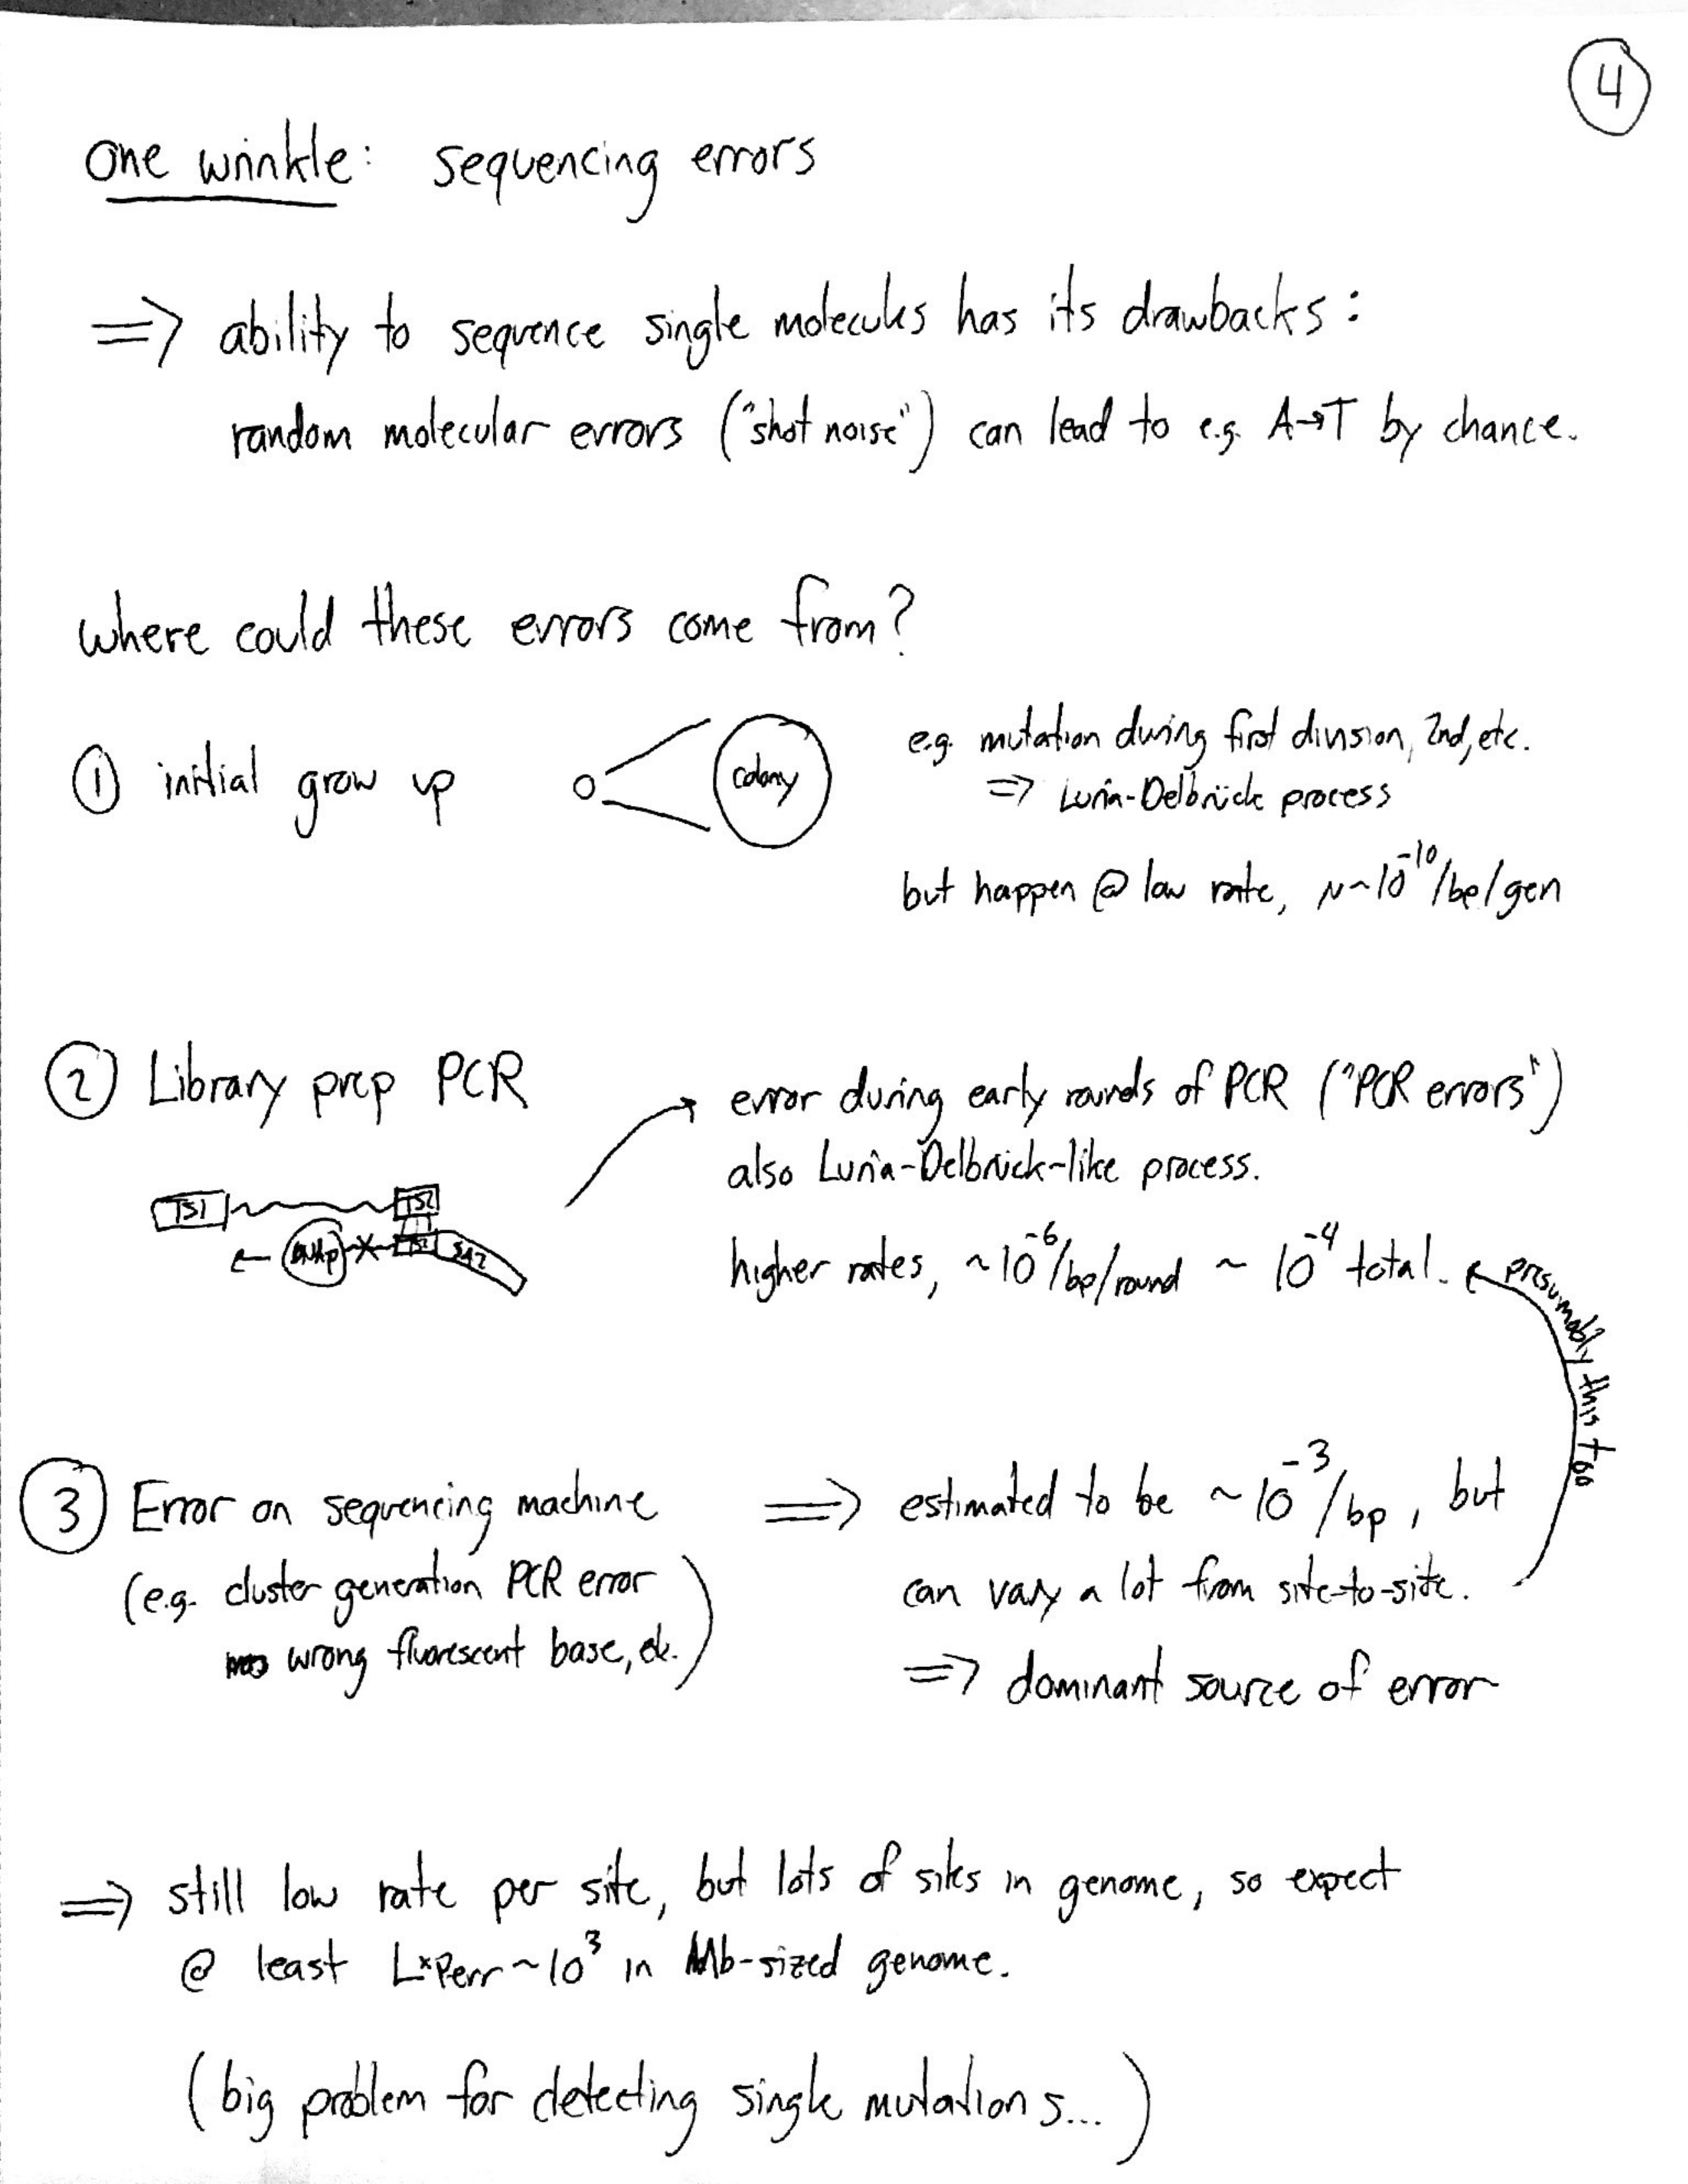 4
one wrinkle: sequencing errors
=> ability to sequence single molecules has its drawbacks:
random molecular errors ("shot noise") can lead to e.g. A→T by chance.
where could these errors come from?
① initial grow up
colony
e.g. mutation during first division, 2nd, etc.
=> Luria-Delbrück process
but happen @ low rate, μ~10^-10/bp/gen
② Library prep PCR
TS1
TS2
TS2
← DNAp
error during early rounds of PCR ("PCR errors")
also Luria-Delbrück-like process.
higher rates, ~10^-6/bp/round ~ 10^-4 total.
presumably this too
③ Error on sequencing machine
(e.g. cluster generation PCR error
wrong fluorescent base, etc.)
=> estimated to be ~10^-3/bp, but
can vary a lot from site-to-site.
=> dominant source of error
=> still low rate per site, but lots of sites in genome, so expect
@ least L×Perr~10^3 in Mb-sized genome.
(big problem for detecting single mutations...)